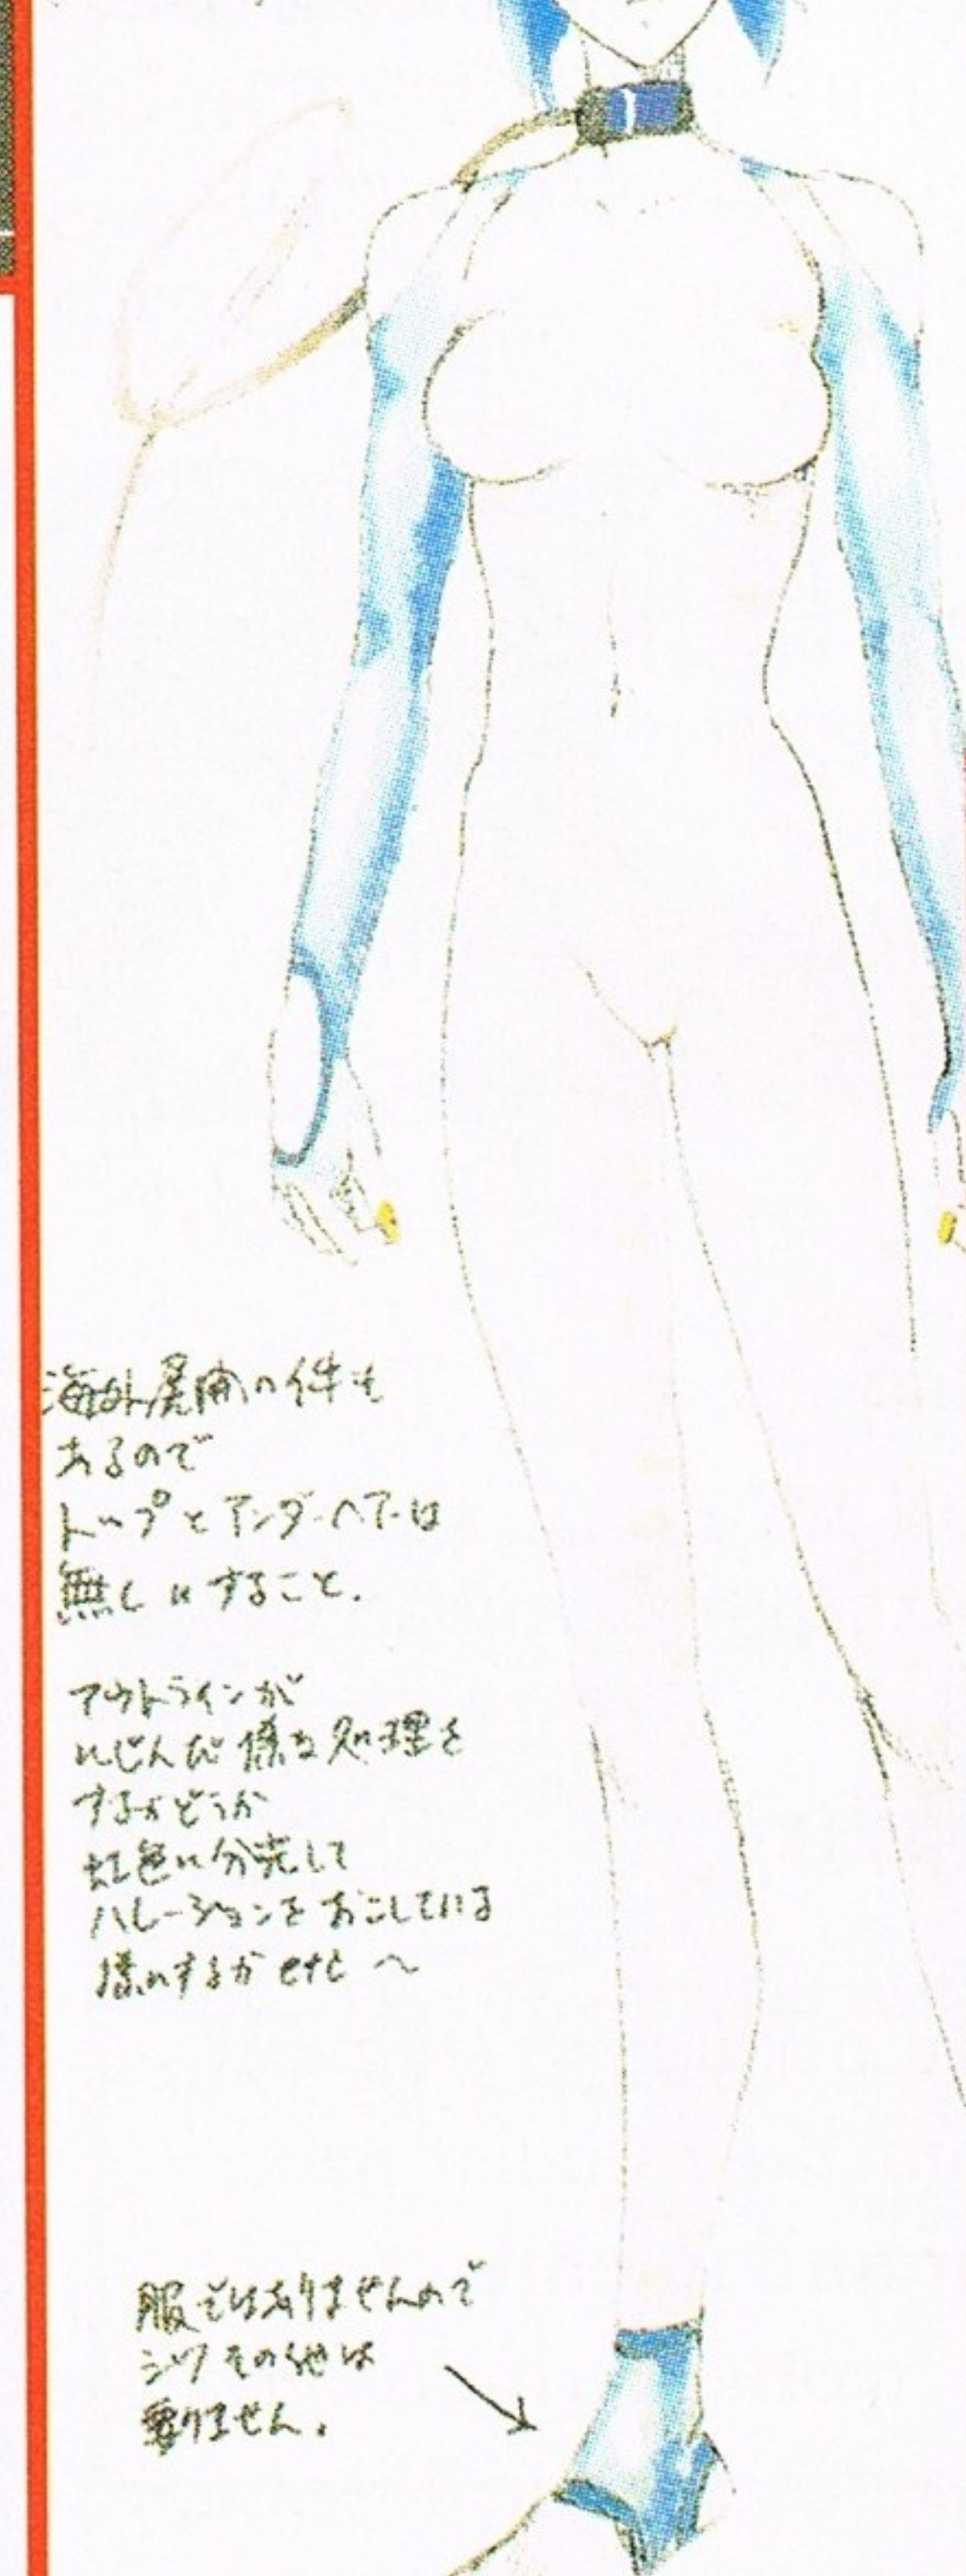 海外展開の件も
あるので
トップとアンダーヘアーは
無しにすること.
アウトラインが
にじんだ様な処理を
するかどうか
虹色に分光して
ハレーションをおこしている
様にするか etc ~
服ではありませんので
シワその他は
要りません.